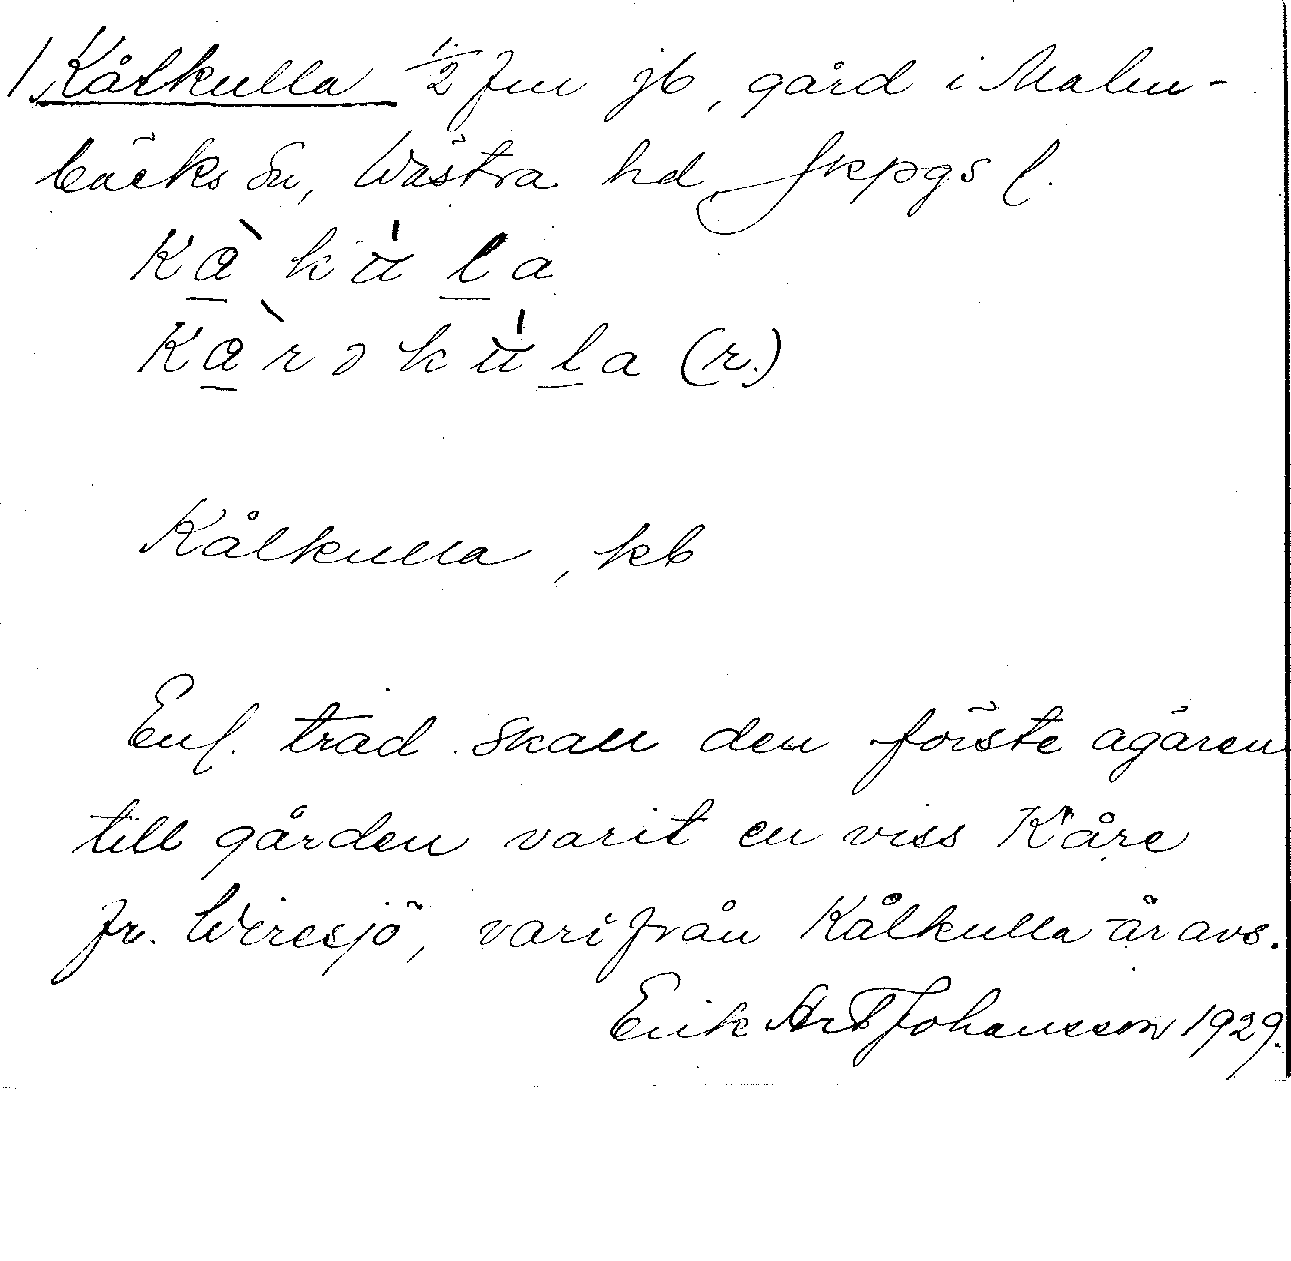 1, Kålkulla 1/2 fm jb, gård i Malm-
bäcks sn, Västra hd, Jkpgs l.
Kà kù la
Kàrəkùla (r.)
Kålkulla, kb
Enl. trad. skall den förste ägaren
till gården varit en viss Kåre
fr. Wiresjö, varifrån Kålkulla är avs.
Erik Johansson 1929.